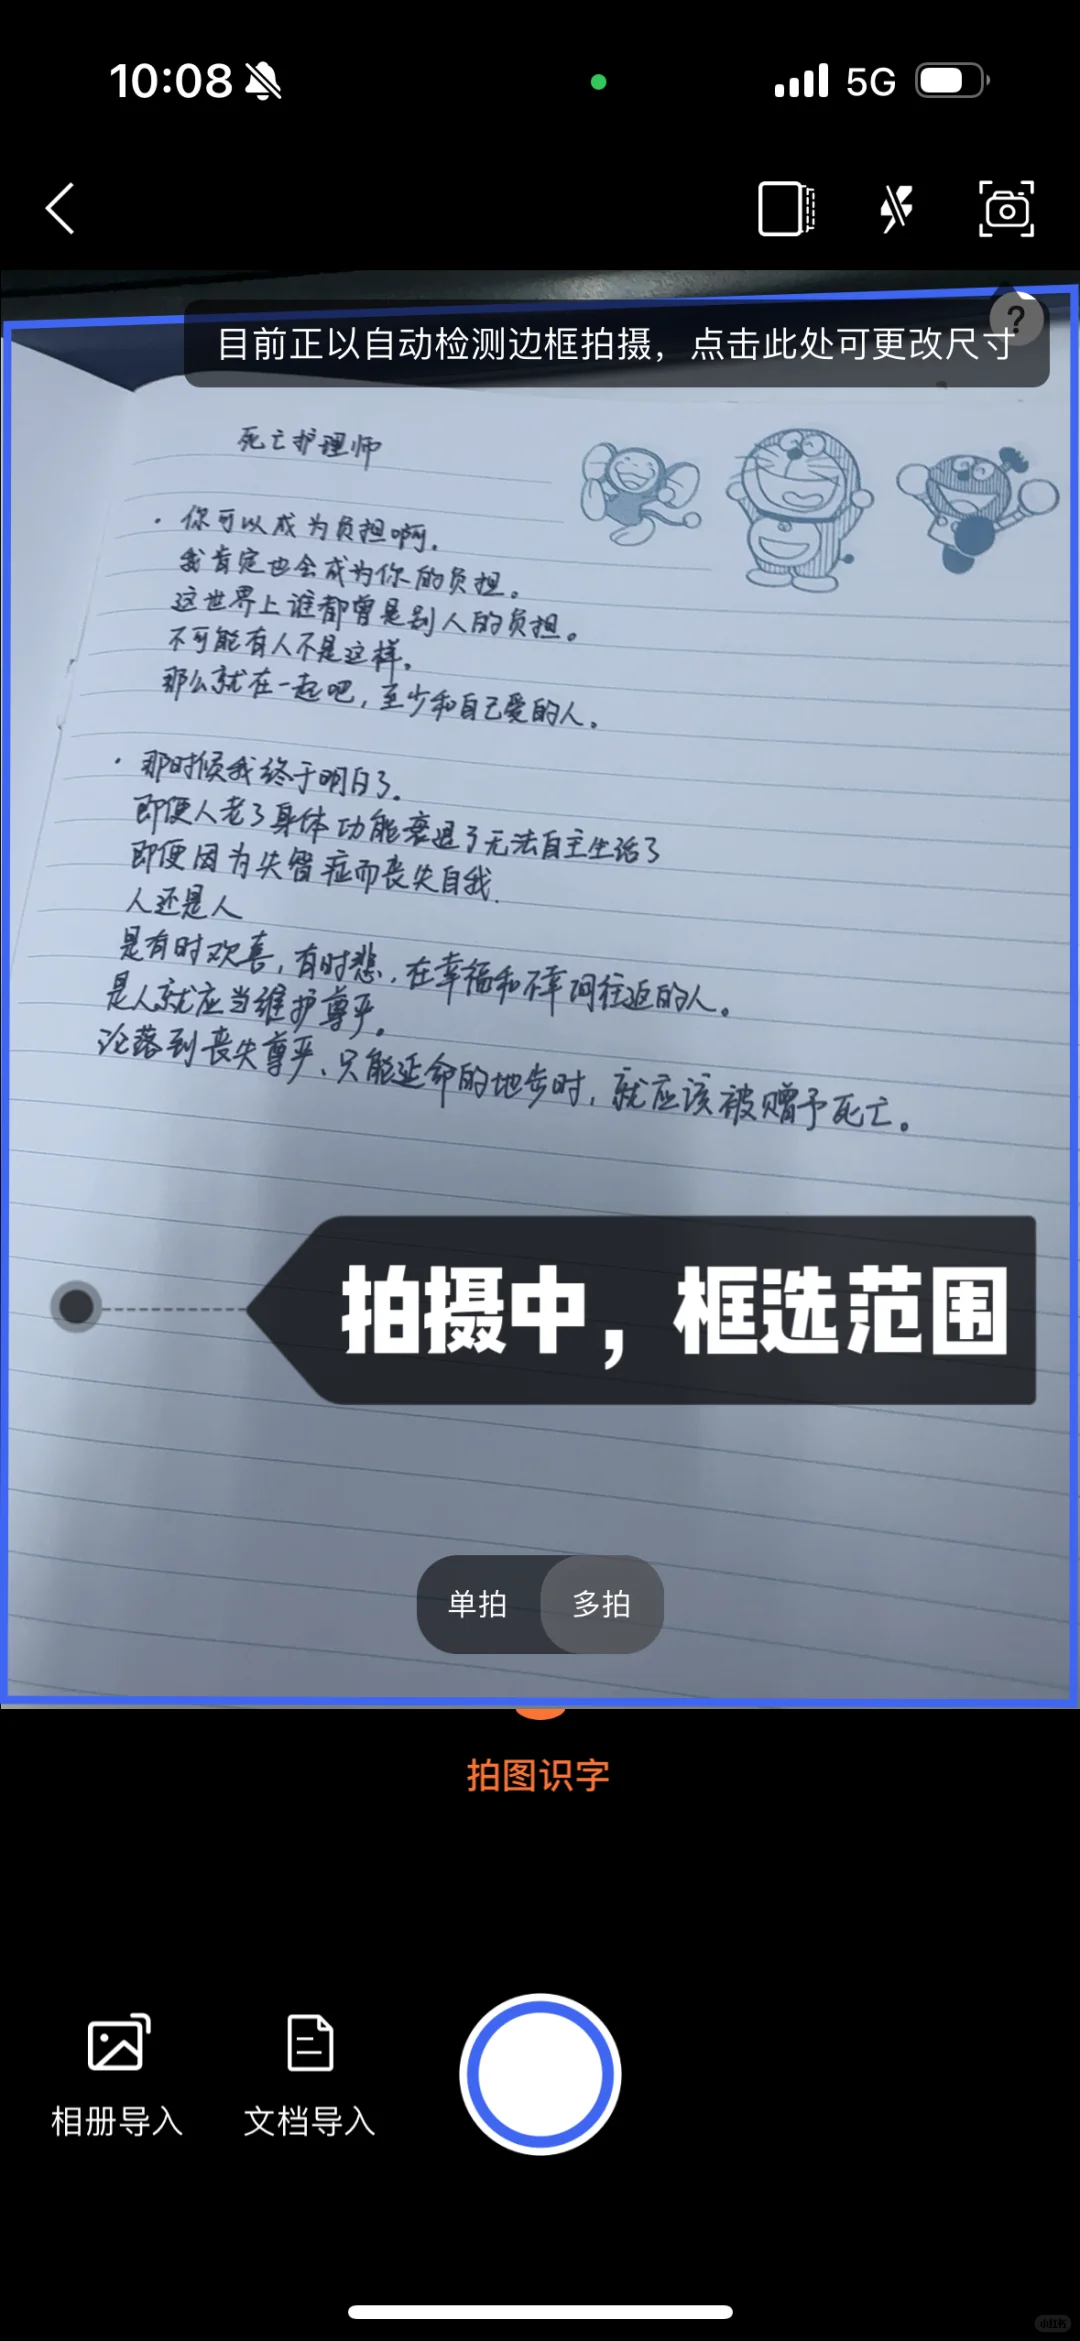 10:08
5G
目前正以自动检测边框拍摄，点击此处可更改尺寸
?
死亡护理师
· 你可以成为负担啊。
我肯定也会成为你的负担。
这世界上谁都曾是别人的负担。
不可能有人不是这样。
那么就在一起吧，至少和自己爱的人。
· 那时候我终于明白了。
即便人老了身体功能衰退了无法自主生活了
即便因为失智症而丧失自我.
人还是人
是有时欢喜，有时悲，在幸福和不幸间往返的人。
是人就应当维护尊严。
沦落到丧失尊严、只能延命的地步时，就应该被赠予死亡。
拍摄中，框选范围
单拍
多拍
拍图识字
相册导入
文档导入
小红书